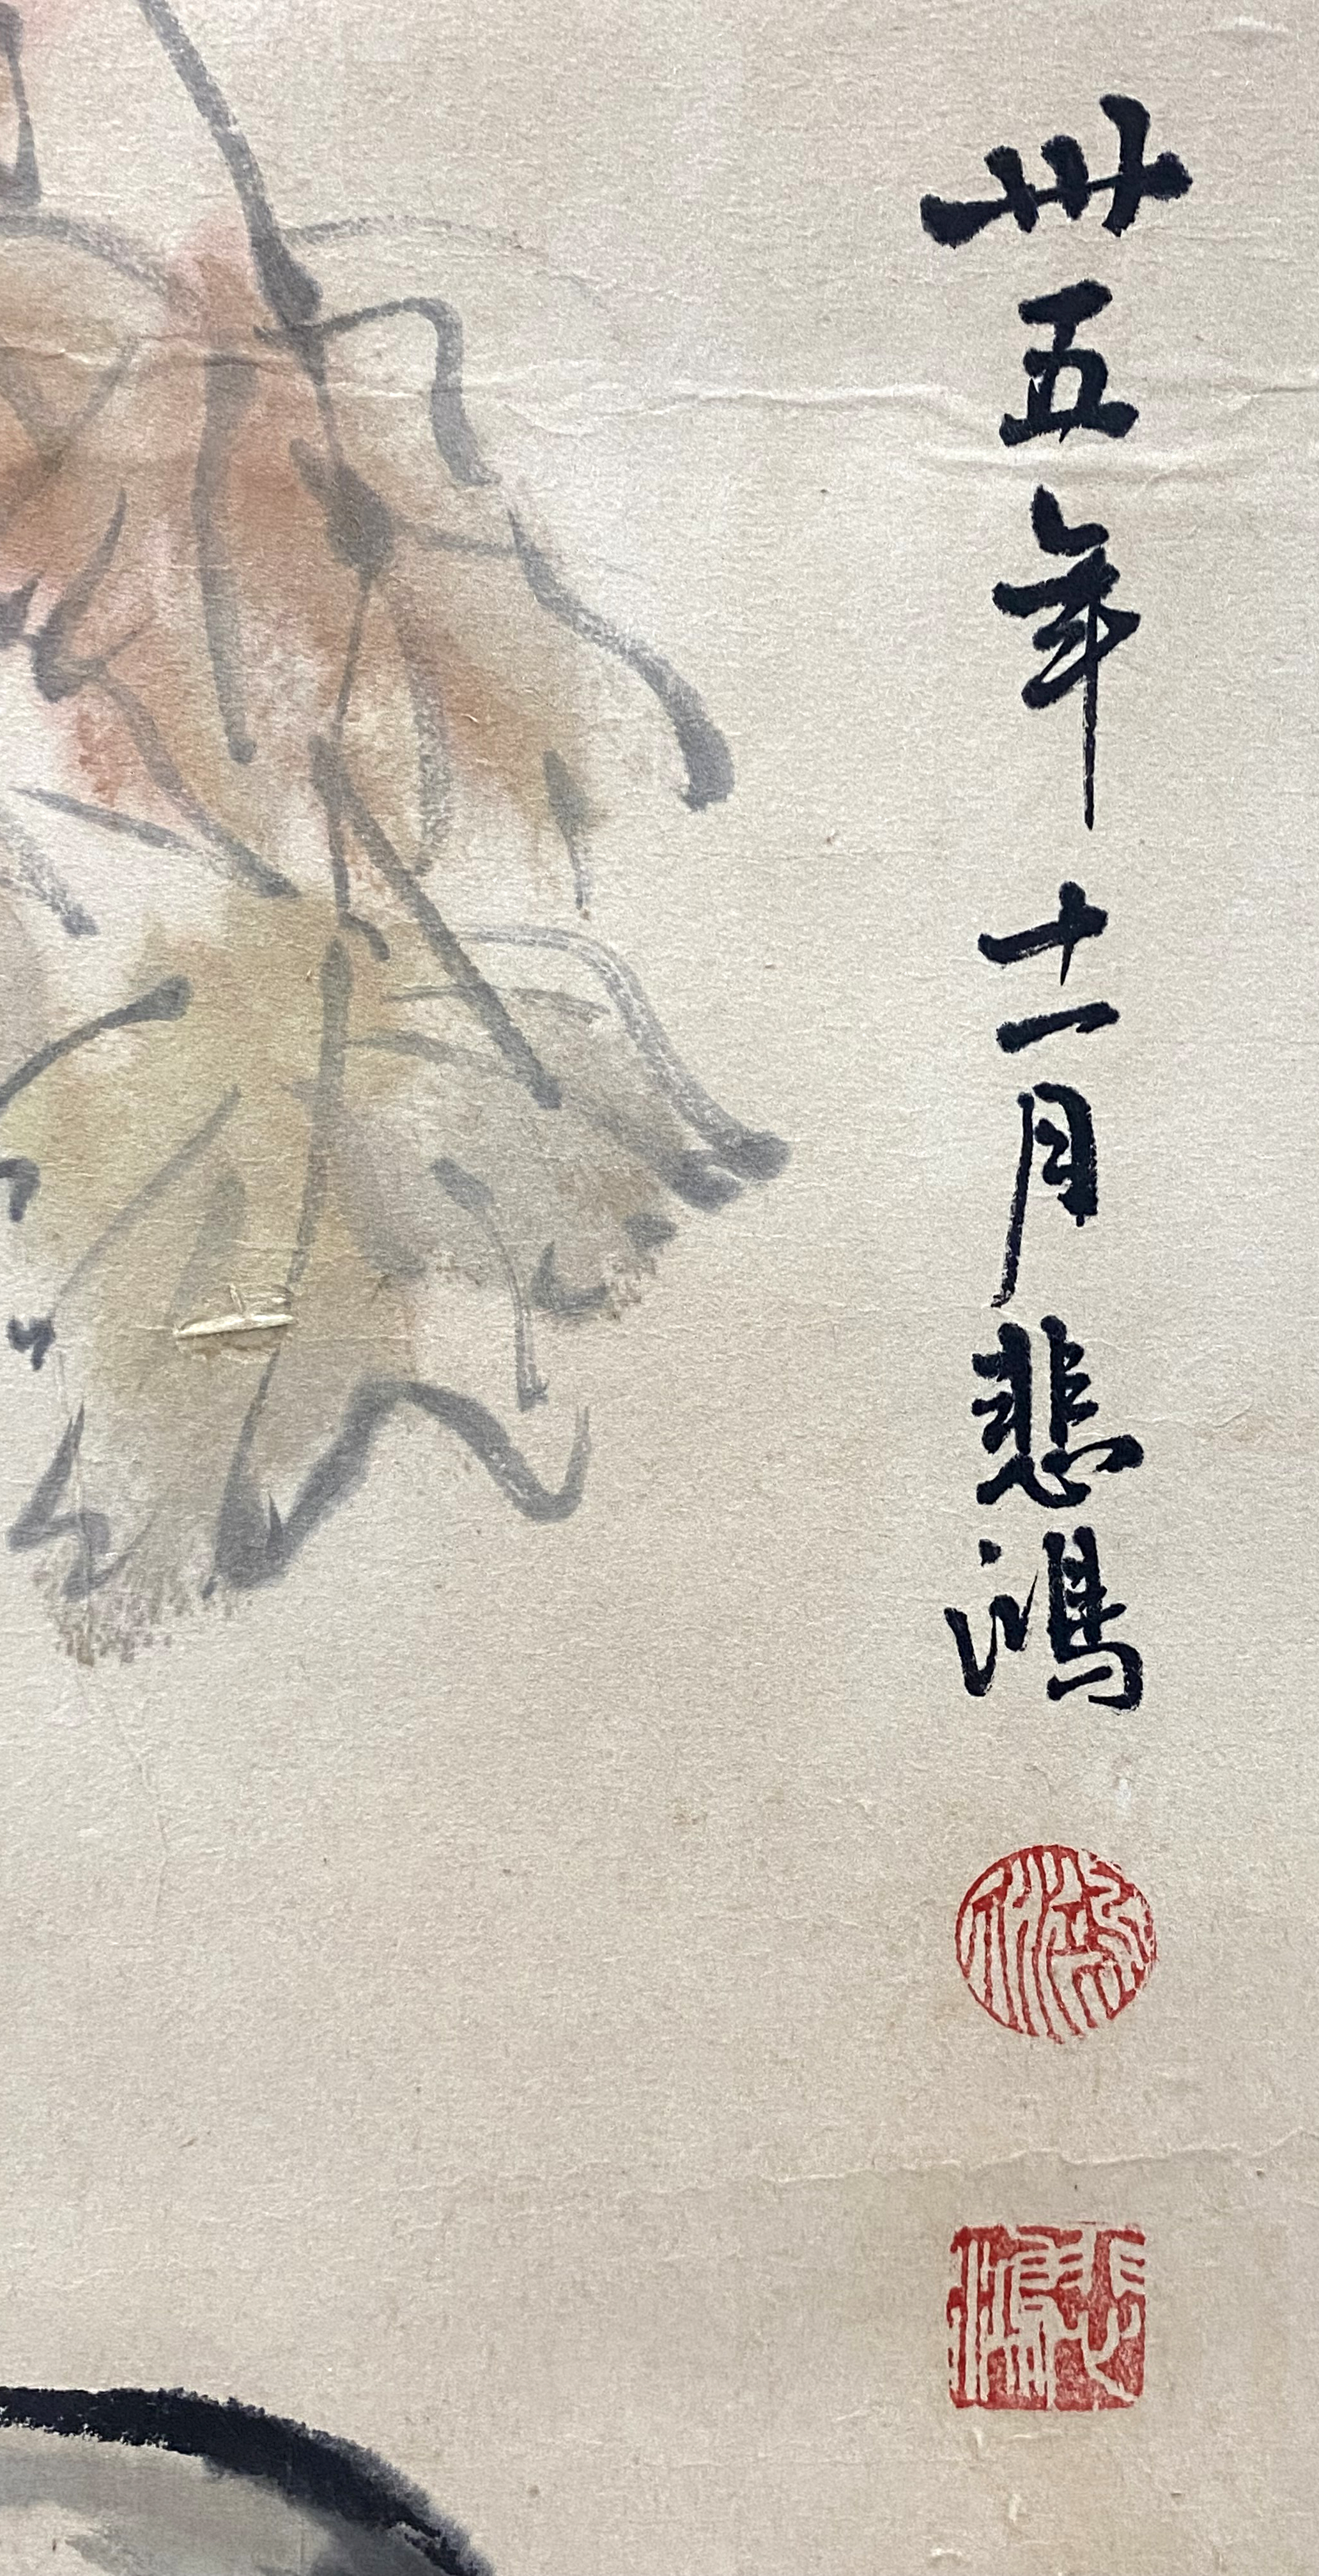 卅五年十一月悲鴻
悲鴻